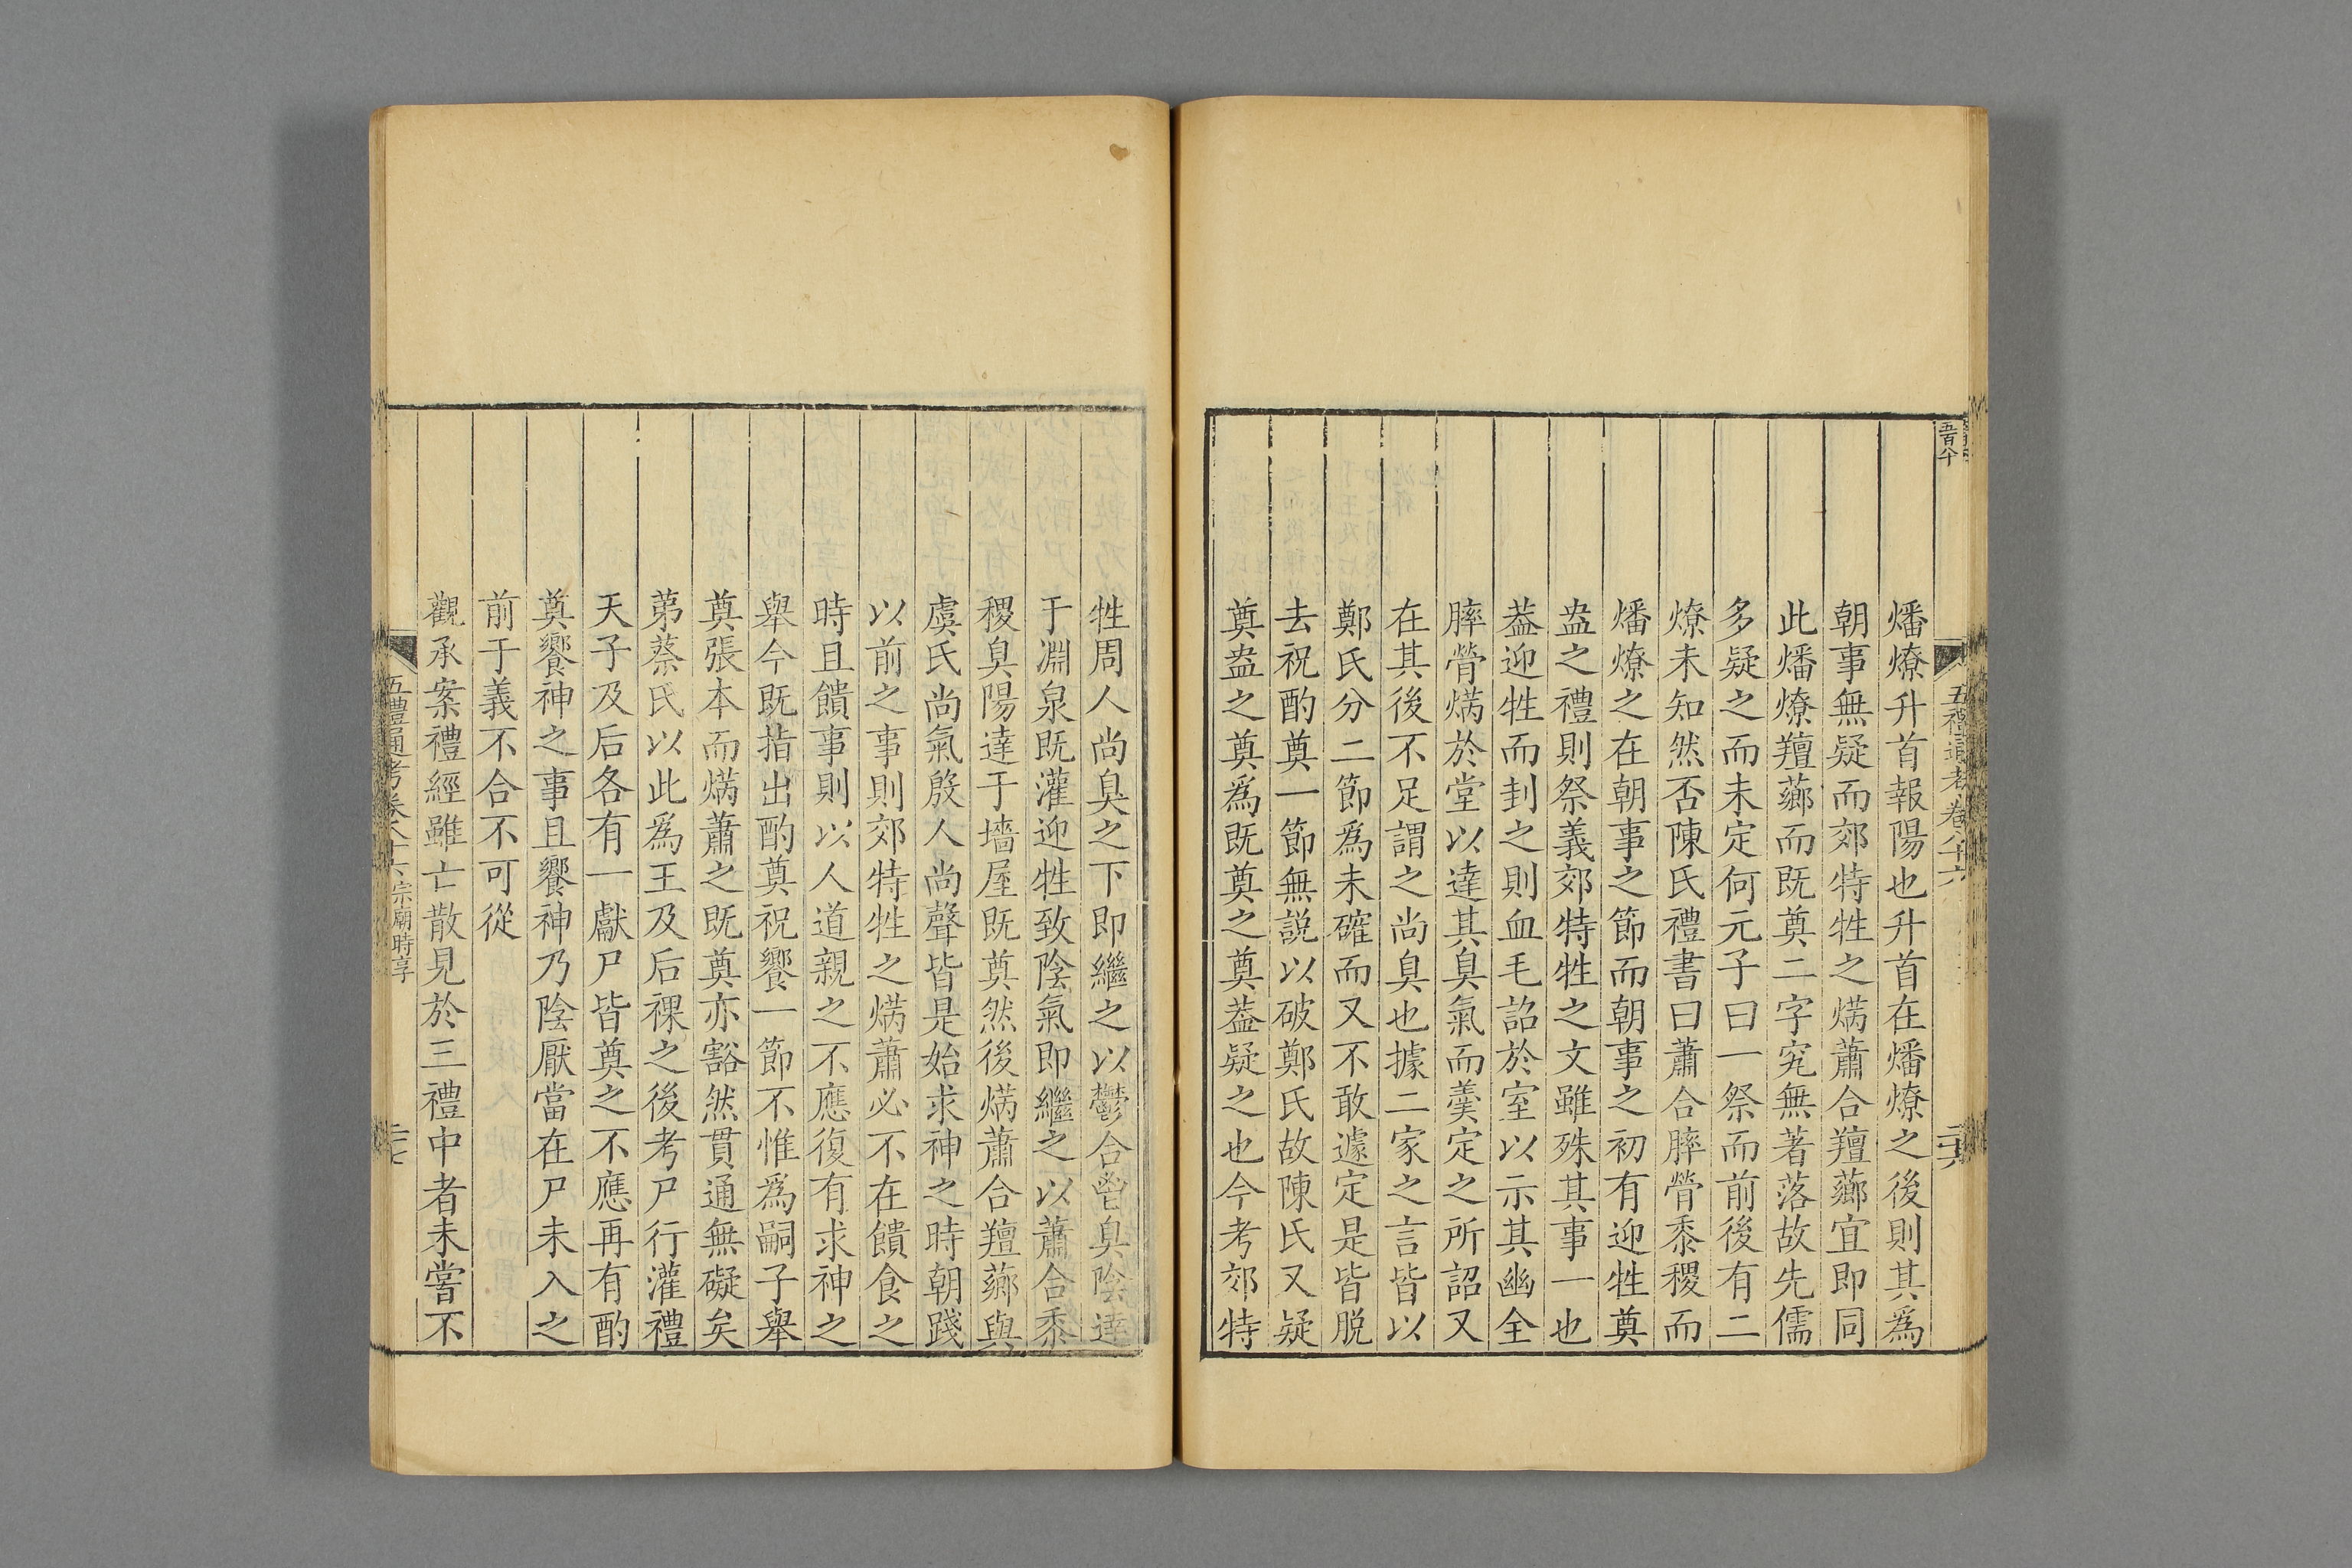 五百八十
五禮通考卷八十六
二十六
燔燎升首報陽也升首在燔燎之後則其爲
朝事無疑而郊特牲之焫蕭合羶薌宜即同
此燔燎羶薌而既奠二字究無著落故先儒
多疑之而未定何元子曰一祭而前後有二
燎未知然否陳氏禮書曰蕭合膟膋黍稷而
燔燎之在朝事之節而朝事之初有迎牲奠
盎之禮則祭義郊特牲之文雖殊其事一也
葢迎牲而刲之則血毛詔於室以示其幽全
膟膋焫於堂以達其臭氣而羹定之所詔又
在其後不足謂之尚臭也據二家之言皆以
鄭氏分二節爲未確而又不敢遽定是皆脱
去祝酌奠一節無説以破鄭氏故陳氏又疑
奠盎之奠爲既奠之奠葢疑之也今考郊特
牲周人尚臭之下即繼之以鬱合鬯臭陰達
于淵泉既灌迎牲致陰氣即繼之以蕭合黍
稷臭陽達于墻屋既奠然後焫蕭合羶薌與
虞氏尚氣殷人尚聲皆是始求神之時朝踐
以前之事則郊特牲之焫蕭必不在饋食之
時且饋事則以人道親之不應復有求神之
舉今既指出酌奠祝饗一節不惟爲嗣子舉
奠張本而焫蕭之既奠亦豁然貫通無礙矣
苐蔡氏以此爲王及后祼之後考尸行灌禮
天子及后各有一獻尸皆奠之不應再有酌
奠饗神之事且饗神乃陰厭當在尸未入之
前于義不合不可從
觀承案禮經雖亡散見於三禮中者未嘗不
五禮通考卷八十六 宗廟時享
二十七